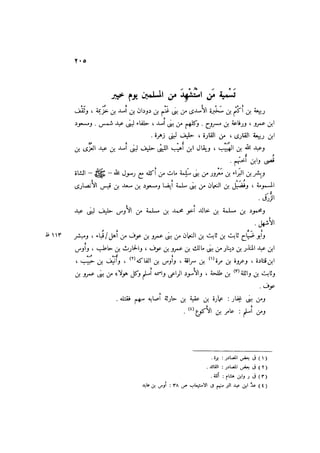 ٢٠٥
تسمية من استشهد من المسلمين يوم خيبر
ربيعة بن أكثم بن سخبرة الأسدى من بنى غنم بن دودان بن أسد بن خزيمة ، وثقف
ابن عمرو ، ورفاعة بن مسروح . وكلهم من بنى أسد ، حلفاء لبنى عبد شمس . ومسعود
ابن ربيعة القارى ، من القارة ، حليف لبنى زهرة .
وعبد الله بن الهبيب ، ويقال ابن أهيب الليثى حليف لبنى أسد بن عبد العزى بن
قصى وابن أختهم .
وبشر بن البراء بن معرور من بنى سلمة مات من أكله مع رسول الله - - الشاة
المسمومة ، وفضيل بن النعمان من بنى سلمة أيضا ومسعود بن سعد بن قيس الأنصارى
الزرقى .
ومحمود بن مسلمة بن خالد أخو محمد بن مسلمة من الأوس حليف لبنى عبد
الأشهل .
وأبو ضياح ثابت بن ثابت بن النعمان من بنى عمرو بن عوف من أهل قباء ، ومبشر
١١٣ ظ
ابن عبد المنذر بن دينار من بنى مالك بن عمرو بن عوف ، والحارث بن حاطب ، وأوس
ابن قتادة ، وعروة بن مرة (١) بن سراقة ، وأوس بن الفاكه (٢) ، وأنيف بن حبيب ،
وثابت بن واثلة (٣) بن طلحة ، والأسود الراعى واسمه أسلم وكل هولاء من بنى عمرو بن
عوف .
ومن بنى غفار : عمارة بن عقبة بن حارثة أصابه سهم فقتله .
ومن أسلم : عامر بن الأكوع (٤) .
(١) فى بعض المصادر : مرة .
(٢) فى بعض المصادر : القائد .
(٣) فى ر وابن هشام : أثلة .
(٤) عد ابن عبد البر منهم فى الاستيعاب ص ٣٨ : أوس بن عابد